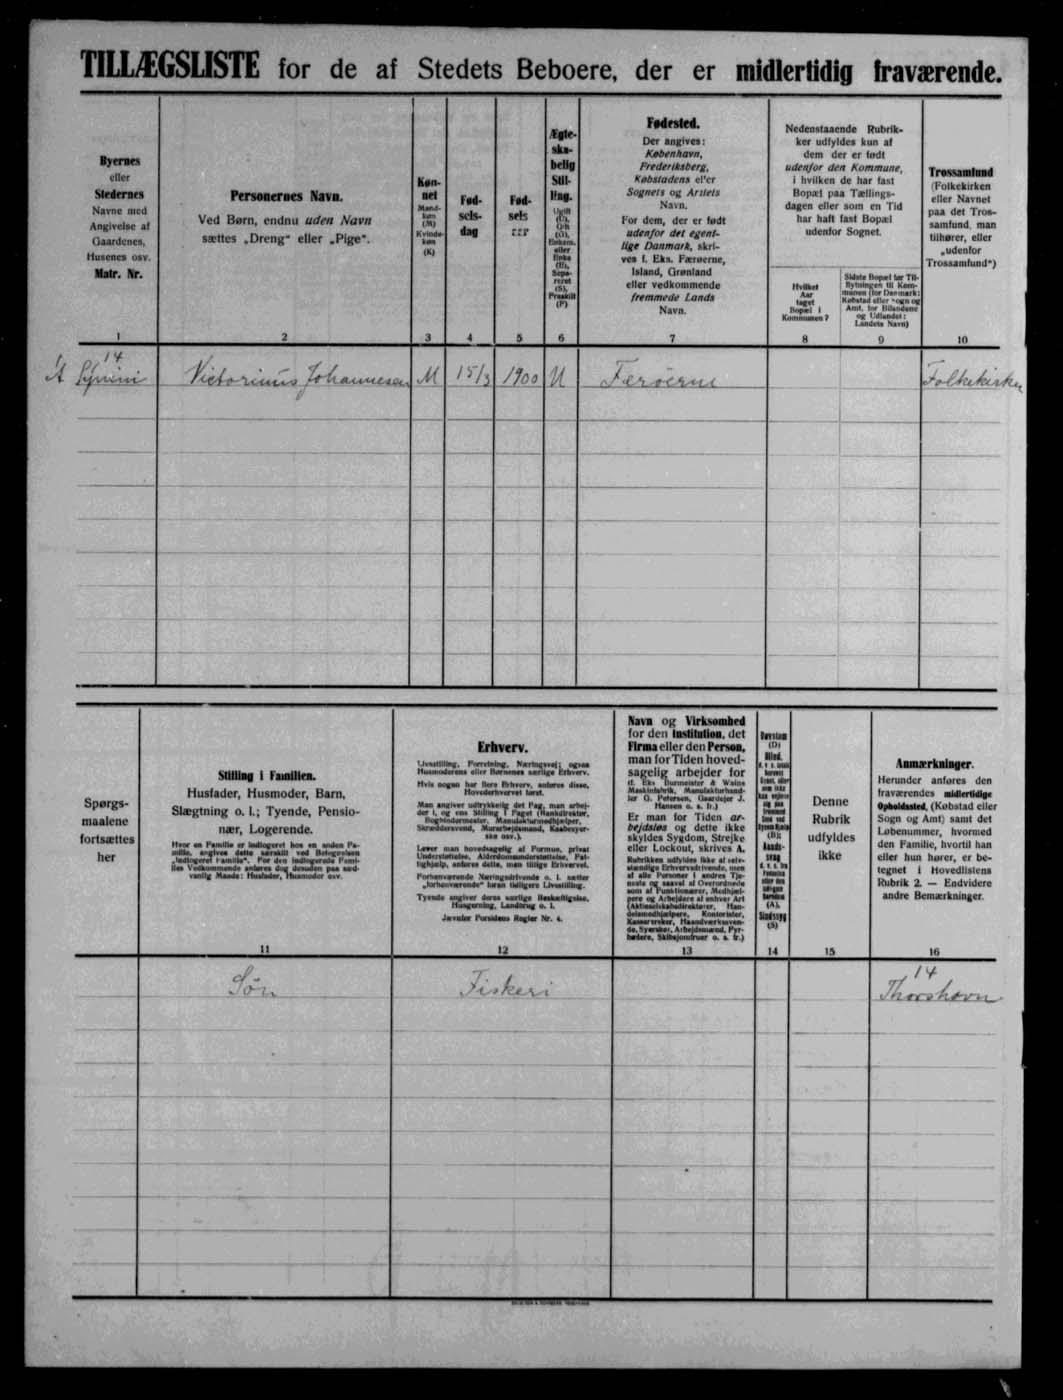 TILLÆGSLISTE for de af Stedets Beboere, der er midlertidig fraværende.
Byernes
eller
Stedernes
Navne med
Angivelse af
Gaardenes,
Husenes osv.
Matr. Nr.
Personernes Navn.
Ved Børn, endnu uden Navn
sættes „Dreng" eller „Pige".
Køn-
net
Mand-
køn
(M)
Kvinde-
køn
(K)
Fød-
sels-
dag
Fød-
sels
Ægte-
ska-
belig
Stil-
ling.
Ugift
(U),
Gift
(G),
Enkem.
eller
Enke
(E),
Sepa-
reret
(S),
Fraskilt
(F)
Fødested.
Der angives:
København,
Frederiksberg,
Købstadens eller
Sognets og Amtets
Navn.
For dem, der er født
udenfor det egent-
lige Danmark, skri-
ves f. Eks. Færøerne,
Island, Grønland
eller vedkommende
fremmede Lands
Navn.
Nedenstaaende Rubrik-
ker udfyldes kun af
dem der er født
udenfor den Kommune,
i hvilken de har fast
Bopæl paa Tællings-
dagen eller som en Tid
har haft fast Bopæl
udenfor Sognet.
Hvilket
Aar
taget
Bopæl i
Kommunen?
Sidste Bopæl før Til-
flytningen til Kom-
munen (for Danmark:
Købstad eller Sogn og
Amt, for Bilandene
og Udlandet:
Landets Navn)
Trossamfund
(Folkekirken
eller Navnet
paa det Tros-
samfund, man
tilhører, eller
„udenfor
Trossamfund")
1 2 3 4 5 6 7 8 9 10
14
Victorinus Johannesen M 15/3 1900 U Færöerne Folkekirken
Spørgs-
maalene
fortsættes
her
Stilling i Familien.
Husfader, Husmoder, Barn,
Slægtning o. l.; Tyende, Pensio-
nær, Logerende.
Hvor en Familie er indlogeret hos en anden Fa-
milie, angives dette særskilt ved Betegnelsen
„indlogeret Familie". For den indlogerede Fami-
lies Vedkommende anføres dog desuden paa sæd-
vanlig Maade: Husfader, Husmoder osv.
Erhverv.
Livsstilling, Forretning, Næringsvej; ogsaa
Husmoderens eller Børnenes særlige Erhverv.
Hvis nogen har flere Erhverv, anføres disse,
Hovederhvervet først.
Man angiver udtrykkelig det Fag, man arbej-
der i, og ens Stilling i Faget (Bankdirektør,
Bogbindermester, Manufakturmedhjælper,
Skræddersvend, Murarbejdsmand, Kaabesyer-
ske osv.).
Lever man hovedsagelig af Formue, privat
Understøttelse, Alderdomsunderstøttelse, Fat-
tighjælp, anføres dette, men tillige Erhvervet.
Forhenværende Næringsdrivende o. l. sætter
„forhenværende" foran tidligere Livsstilling.
Tyende angiver deres særlige Beskæftigelse,
Husgerning, Landbrug o. l.
Jævnfør Forsidens Regler Nr. 4.
Navn og Virksomhed
for den Institution, det
Firma eller den Person,
man for Tiden hoved-
sagelig arbejder for
(f. Eks Burmeister & Wains
Maskinfabrik, Manufakturhand-
ler G. Petersen, Gaardejer J.
Hansen o. s. fr.)
Er man for Tiden ar-
bejdsløs og dette ikke
skyldes Sygdom, Strejke
eller Lockout, skrives A.
Rubrikken udfyldes ikke af selv-
stændige Erhvervsdrivende, men
af alle Personer i andres Tje-
neste og saavel af Overordnede
som af Funktionærer, Medhjæl-
pere og Arbejdere af enhver Art
(Aktieselskabsdirektører, Han-
delsmedhjælpere, Kontorister,
Kassererske, Haandværkssven-
de, Syersker, Arbejdsmænd, Fyr-
bødere, Skibsjomfruer o. s. fr.)
Døvstum
(D)
Blind,
(B);
Aands-
svag
(A),
Sindssyg
(S)
Denne
Rubrik
udfyldes
ikke
Anmærkninger.
Herunder anføres den
fraværendes midlertidige
Opholdssted, (Købstad eller
Sogn og Amt) samt det
Løbenummer, hvormed
den Familie, hvortil han
eller hun hører, er be-
tegnet i Hovedlistens
Rubrik 2. — Endvidere
andre Bemærkninger.
11 12 13 14 15 16
14
Sön Fiskeri Thorshavn